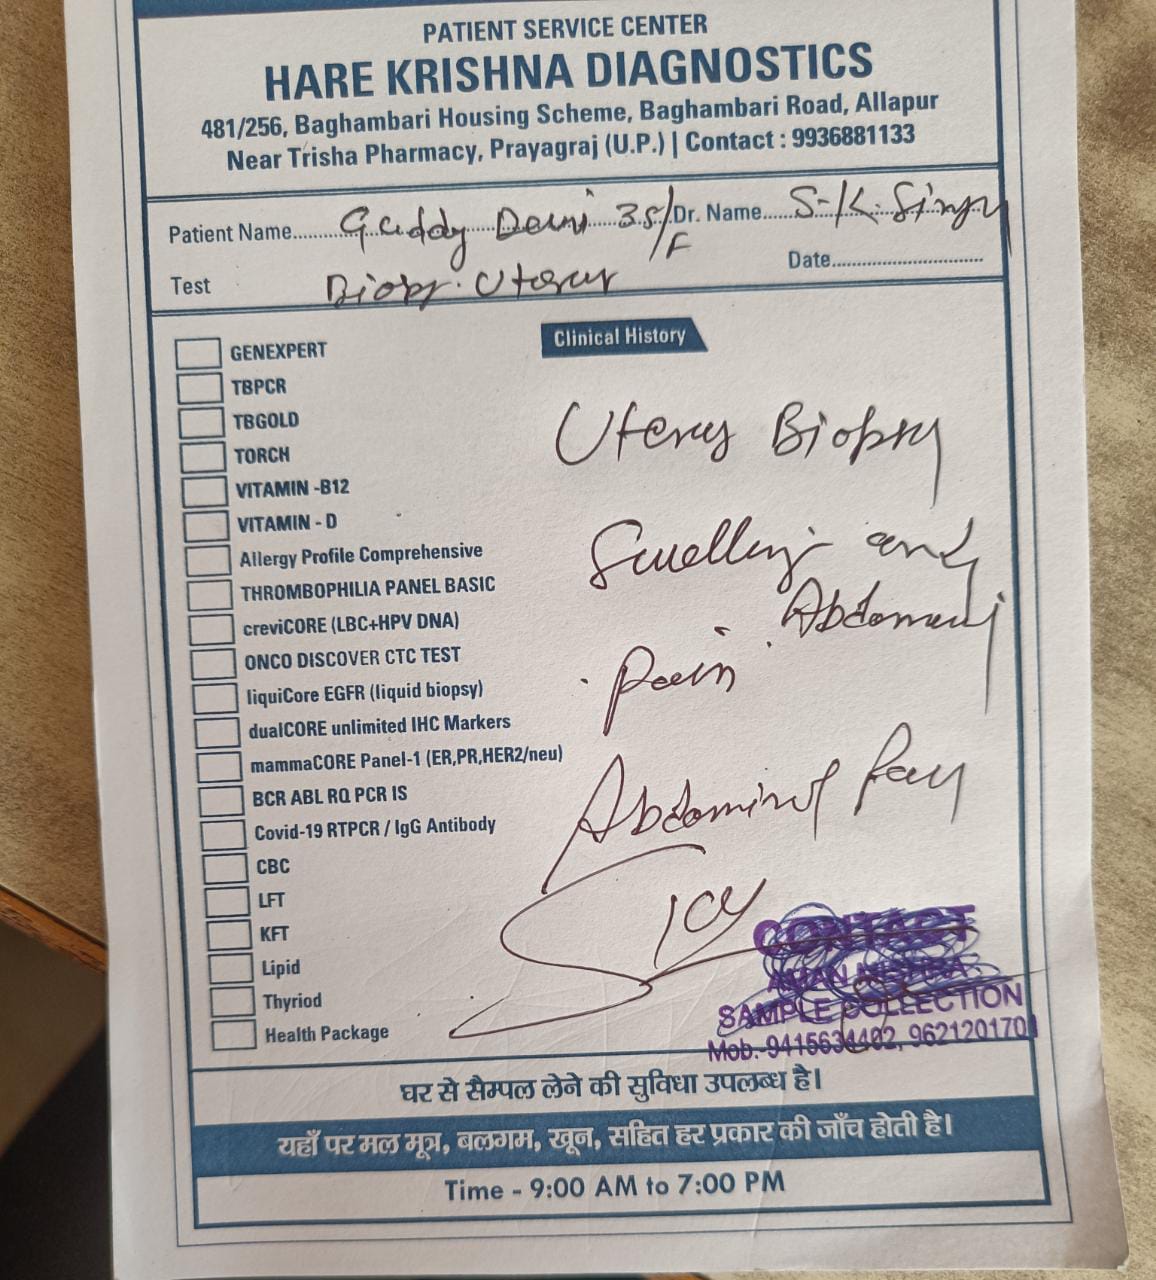 PATIENT SERVICE CENTER
HARE KRISHNA DIAGNOSTICS
481/256, Baghambari Housing Scheme, Baghambari Road, Allapur
Near Trisha Pharmacy, Prayagraj (U.P.) | Contact : 9936881133
Patient Name.......Guddy Devi 35/F Dr. Name.....S.K. Singh
Test Biopsy. Uterus Date..............................
Clinical History
GENEXPERT
TBPCR
TBGOLD
TORCH
VITAMIN -B12
VITAMIN - D
Allergy Profile Comprehensive
THROMBOPHILIA PANEL BASIC
creviCORE (LBC+HPV DNA)
ONCO DISCOVER CTC TEST
liquiCore EGFR (liquid biopsy)
dualCORE unlimited IHC Markers
mammaCORE Panel-1 (ER,PR,HER2/neu)
BCR ABL RQ PCR IS
Covid-19 RTPCR / IgG Antibody
CBC
LFT
KFT
Lipid
Thyriod
Health Package
Uterus Biopsy
Swelling and
Abdomen
Pain
CONTACT
SAMPLE COLLECTION
Mob.-9415634402, 9621201701
घर से सैम्पल लेने की सुविधा उपलब्ध है।
यहाँ पर मल मूत्र, बलगम, खून, सहित हर प्रकार की जाँच होती है।
Time - 9:00 AM to 7:00 PM